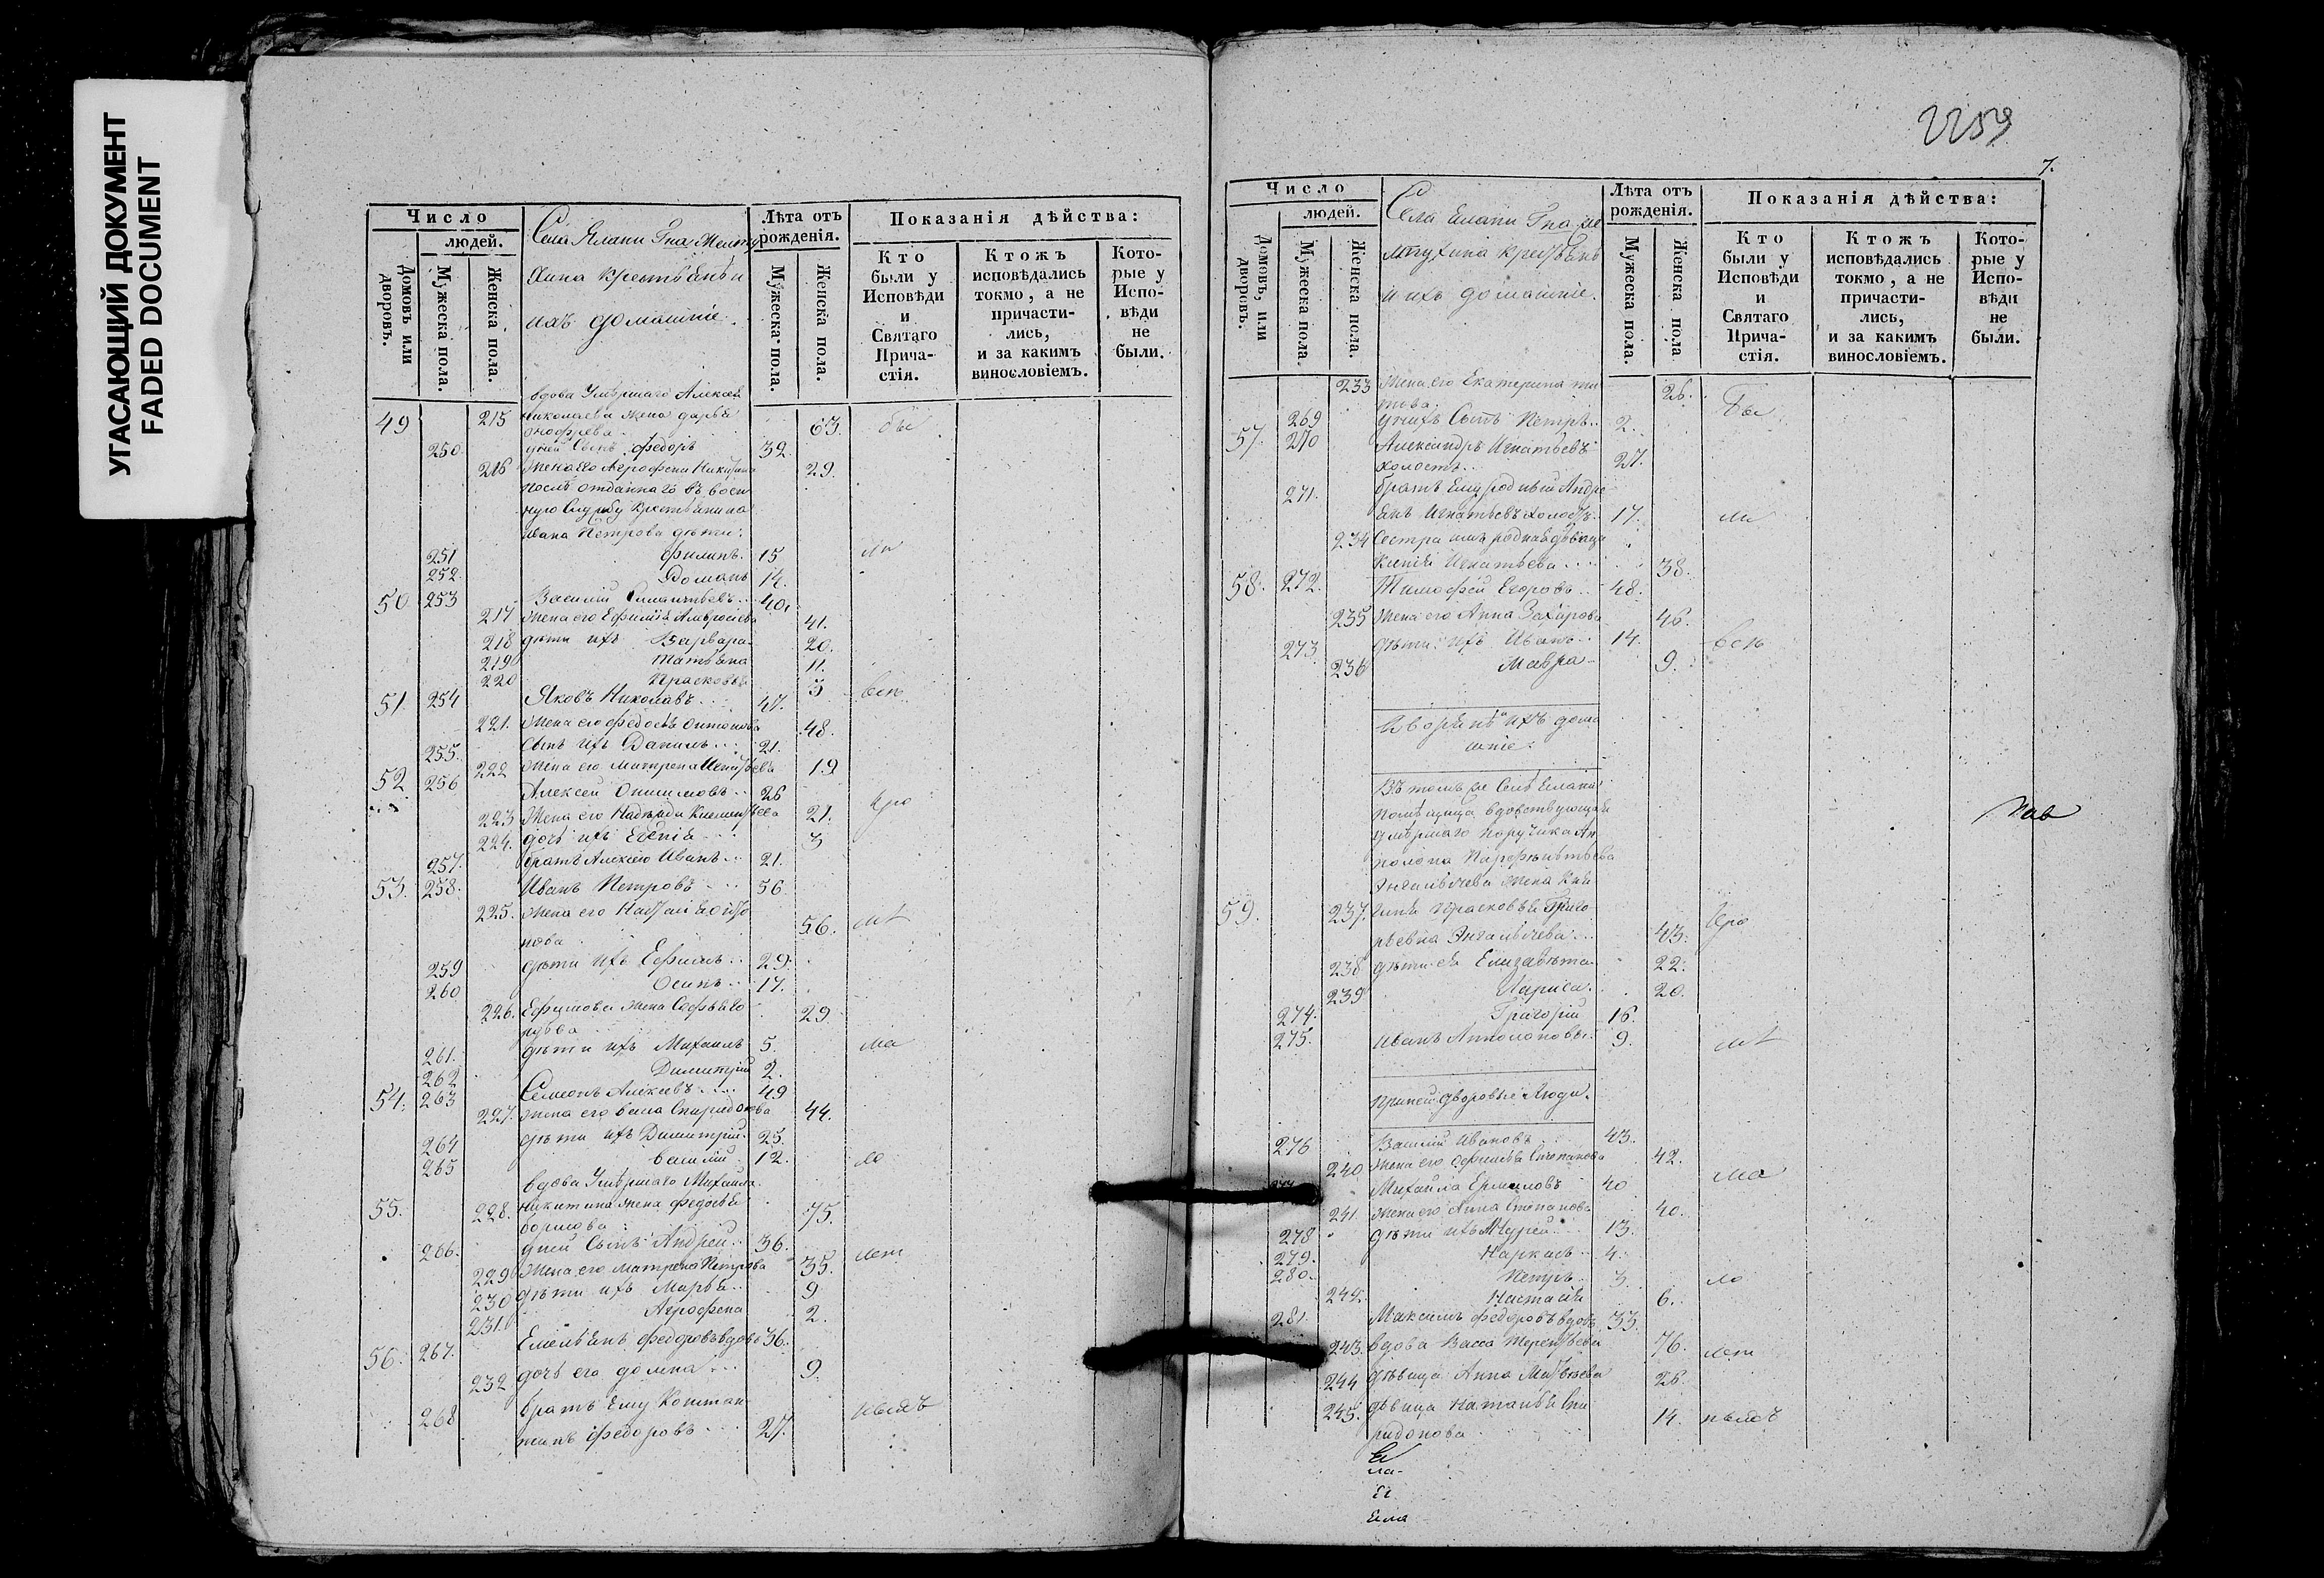 УГАСАЮЩИЙ ДОКУМЕНТ
FADED DOCUMENT
Число
людей.
Домовъ или дворовъ.
Мужеска пола.
Женска пола.
Села Ялани Гна Мелту
хина крестьянѣ и
ихъ домашніе.
Лѣта отъ рожденія.
Мужеска пола.
Женска пола.
Показанія дѣйства:
Кто были у Исповѣди и Святаго Прича-стія.
Ктожъ исповѣдались токмо, а не причасти-лись, и за какимъ винословіемъ.
Кото-рые у Испо-вѣди не были.
вдова Умершаго Алексея
49 215 Николаева жена дарья 63. бы
Онофрева
250 у ней Сынъ федоръ 32
216 Жена его Агрофена Никитина 29.
послѣ отданнаго въ воен
ную Службу Крестьянина
Ивана Петрова дѣти:
251 филипъ. 15 ли
252 Романъ 14.
50 253 Василій 40.
217 Жена его Ефимія Амвросіева 41.
218 дѣти ихъ Варвара 20.
219 Татьяна 11.
220 Прасковья 5 всѣ
51. 254 Яковъ Николаевъ 47.
221. Жена его федосья Антонова 48.
255. Сынъ ихъ Данилъ 21.
222 Жена его Матрена 19
52 256 Алексей Онисимовъ 26
223 Жена его Надежда Клементьева 21. про
224. дочь ихъ Евгенія 3
257. братъ Алексею Иванъ 21.
53. 258. Иванъ Петровъ 56
225. Жена его 56. мѣ
нова
259 дѣти ихъ Ефимъ 29.
260 Осипъ 17.
226. Ефимова жена Софья 29
261. дѣти ихъ Михаилъ 5. ма
262 Димитрій 2.
54. 263 Семенъ Алексеевъ 49
227. Жена его Спиридонова 44.
264 дѣти ихъ Димитрій 25.
265 Василій 12. ло
вдова Умершаго Михаила
55. 228. Никитина жена федосья 75.
борисова
266. у ней Сынъ Андрей 36. лет
229 Жена его Матрена Петрова 35.
230 дѣти ихъ Марья 9
231. Агрофена 2.
56. 267. Емельянъ федоровъ вдовъ 36.
232 дочь его домна 9.
268 братъ Ему Констан
тинъ федоровъ 27.
2259
7.
Число
людей.
Домовъ, или дворовъ.
Мужеска пола.
Женска пола.
Села Елани Гна ме
лтухина крестьянѣ
и ихъ домашніе.
Лѣта отъ рожденія.
Мужеска пола.
Женска пола
Показанія дѣйства:
Кто были у Исповѣди и Святаго Прича-стія.
Ктожъ исповѣдались токмо, а не причасти-лись, и за какимъ винословіемъ.
Кото-рые у Испо-вѣди не были.
233 Жена его Екатерина ти 26. бы
това
269 у нихъ Сынъ Петръ 2
57. 270 Александръ Игнатьевъ
холостъ 27.
271. братъ Ему родный Андре
янъ Игнатьевъ холостъ 17. ли
234 Сестра имъ родная дѣвица
Ксенія Игнатьева 38.
58. 272. Тимофей Егоровъ 48.
235 Жена его Анна Захарова 46.
273 дѣти ихъ Иванъ 14. всѣ
236 Мавра 9.
Дворянѣ ихъ дома
шніе.
Въ томъ же Селѣ Елани
помѣщица вдовствующая
Умершаго Поручика Ап
полона Парфентьева
Энгалычева жена Кня
59. 237. гиня Прасковья Григо про
рьевна Энгалычева 43.
238 дѣти ея Елизавета 22.
239 Лариса 20.
274. Григорій 16.
275. Иванъ Апполоновы 9. мѣ
При ней дворовые Люди.
276 Василій Ивановъ 43.
240 Жена его Степанова 42. ма
Михайла Ермиловъ 40
241. Жена его Анна Степанова 40.
278 дѣти ихъ 13.
279. 4.
280. Петръ 3. ло
242. Настасія 6.
281. Максимъ федоровъ вдовъ 33.
243. вдова Васса Терентьева 76. лет
244 дѣвица Анна Матвеева 26.
245. дѣвица Наталья Спи 14.
ридонова
Ела